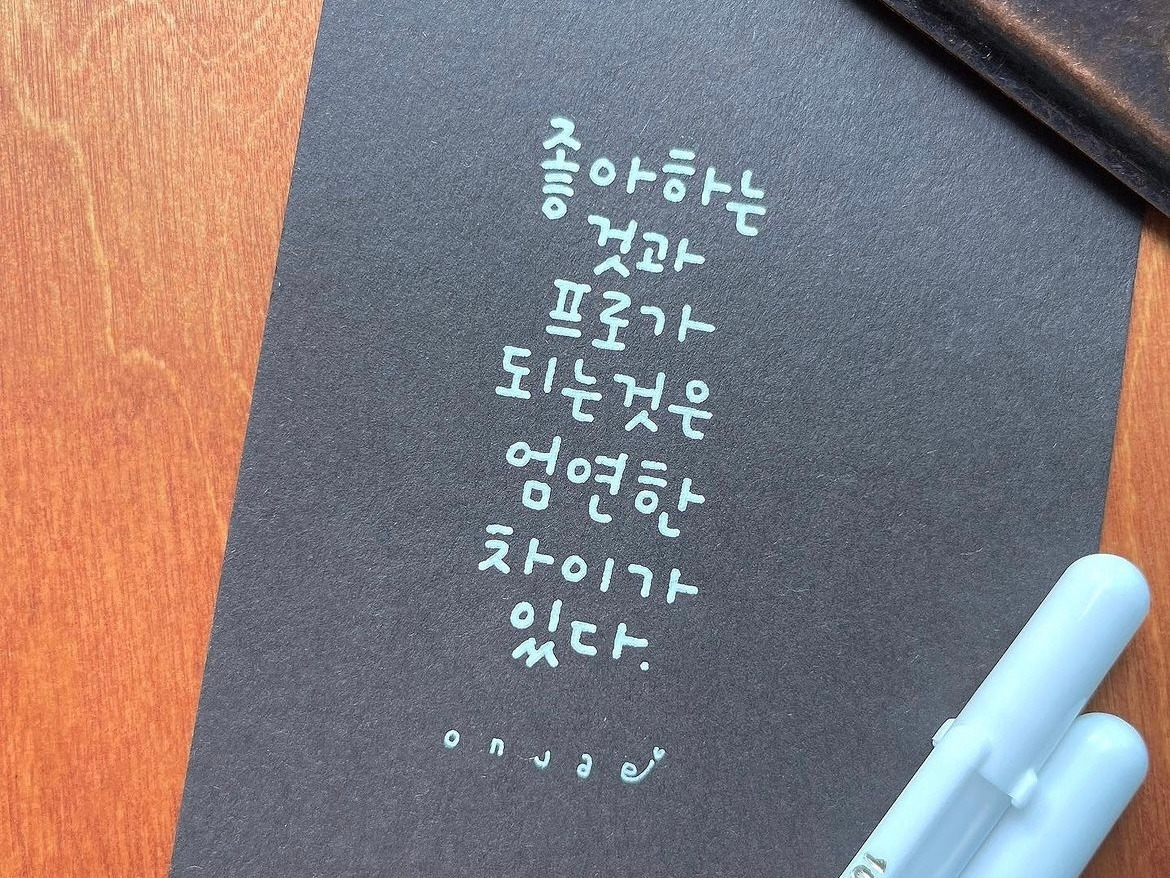 좋아하는
것과
프로가
되는것은
엄연한
차이가
있다.
onjae
10